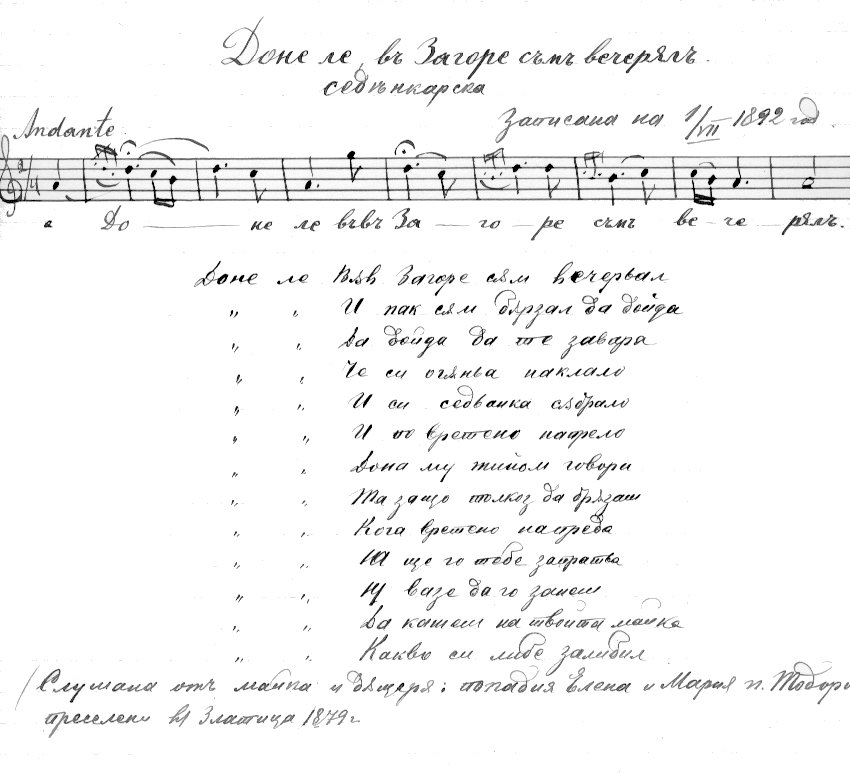 Доне ле, въ Загоре съмъ вечерялъ.
седѣнкарска
Andante
Записана на 1/VII 1892 год.
2/4
е До — не ле въвъ За — го — ре съмъ ве — че — рялъ.
Доне ле Вѫв Загоре сѫм вечервал
„ „ И пак сѫм бѫрзал да дойда
„ „ Да дойда да те завара
„ „ Че си огѫньа наклало
„ „ И си седѣанка сѫбрало
„ „ И по вретено напрело
„ „ Дона му жийом говори
„ „ Та защо толкоз да брѫзаш
„ „ Кога вретено напреда
„ „ ще го тебе запратва
„ „ вазе да го занеш
„ „ Да кажеш на твойта майка
„ „ Какво си либе залибил
(Слушана отъ майка и дѫщеря: попадия Елена и Мария п. Тодори
преселени въ Златица 1879 г.